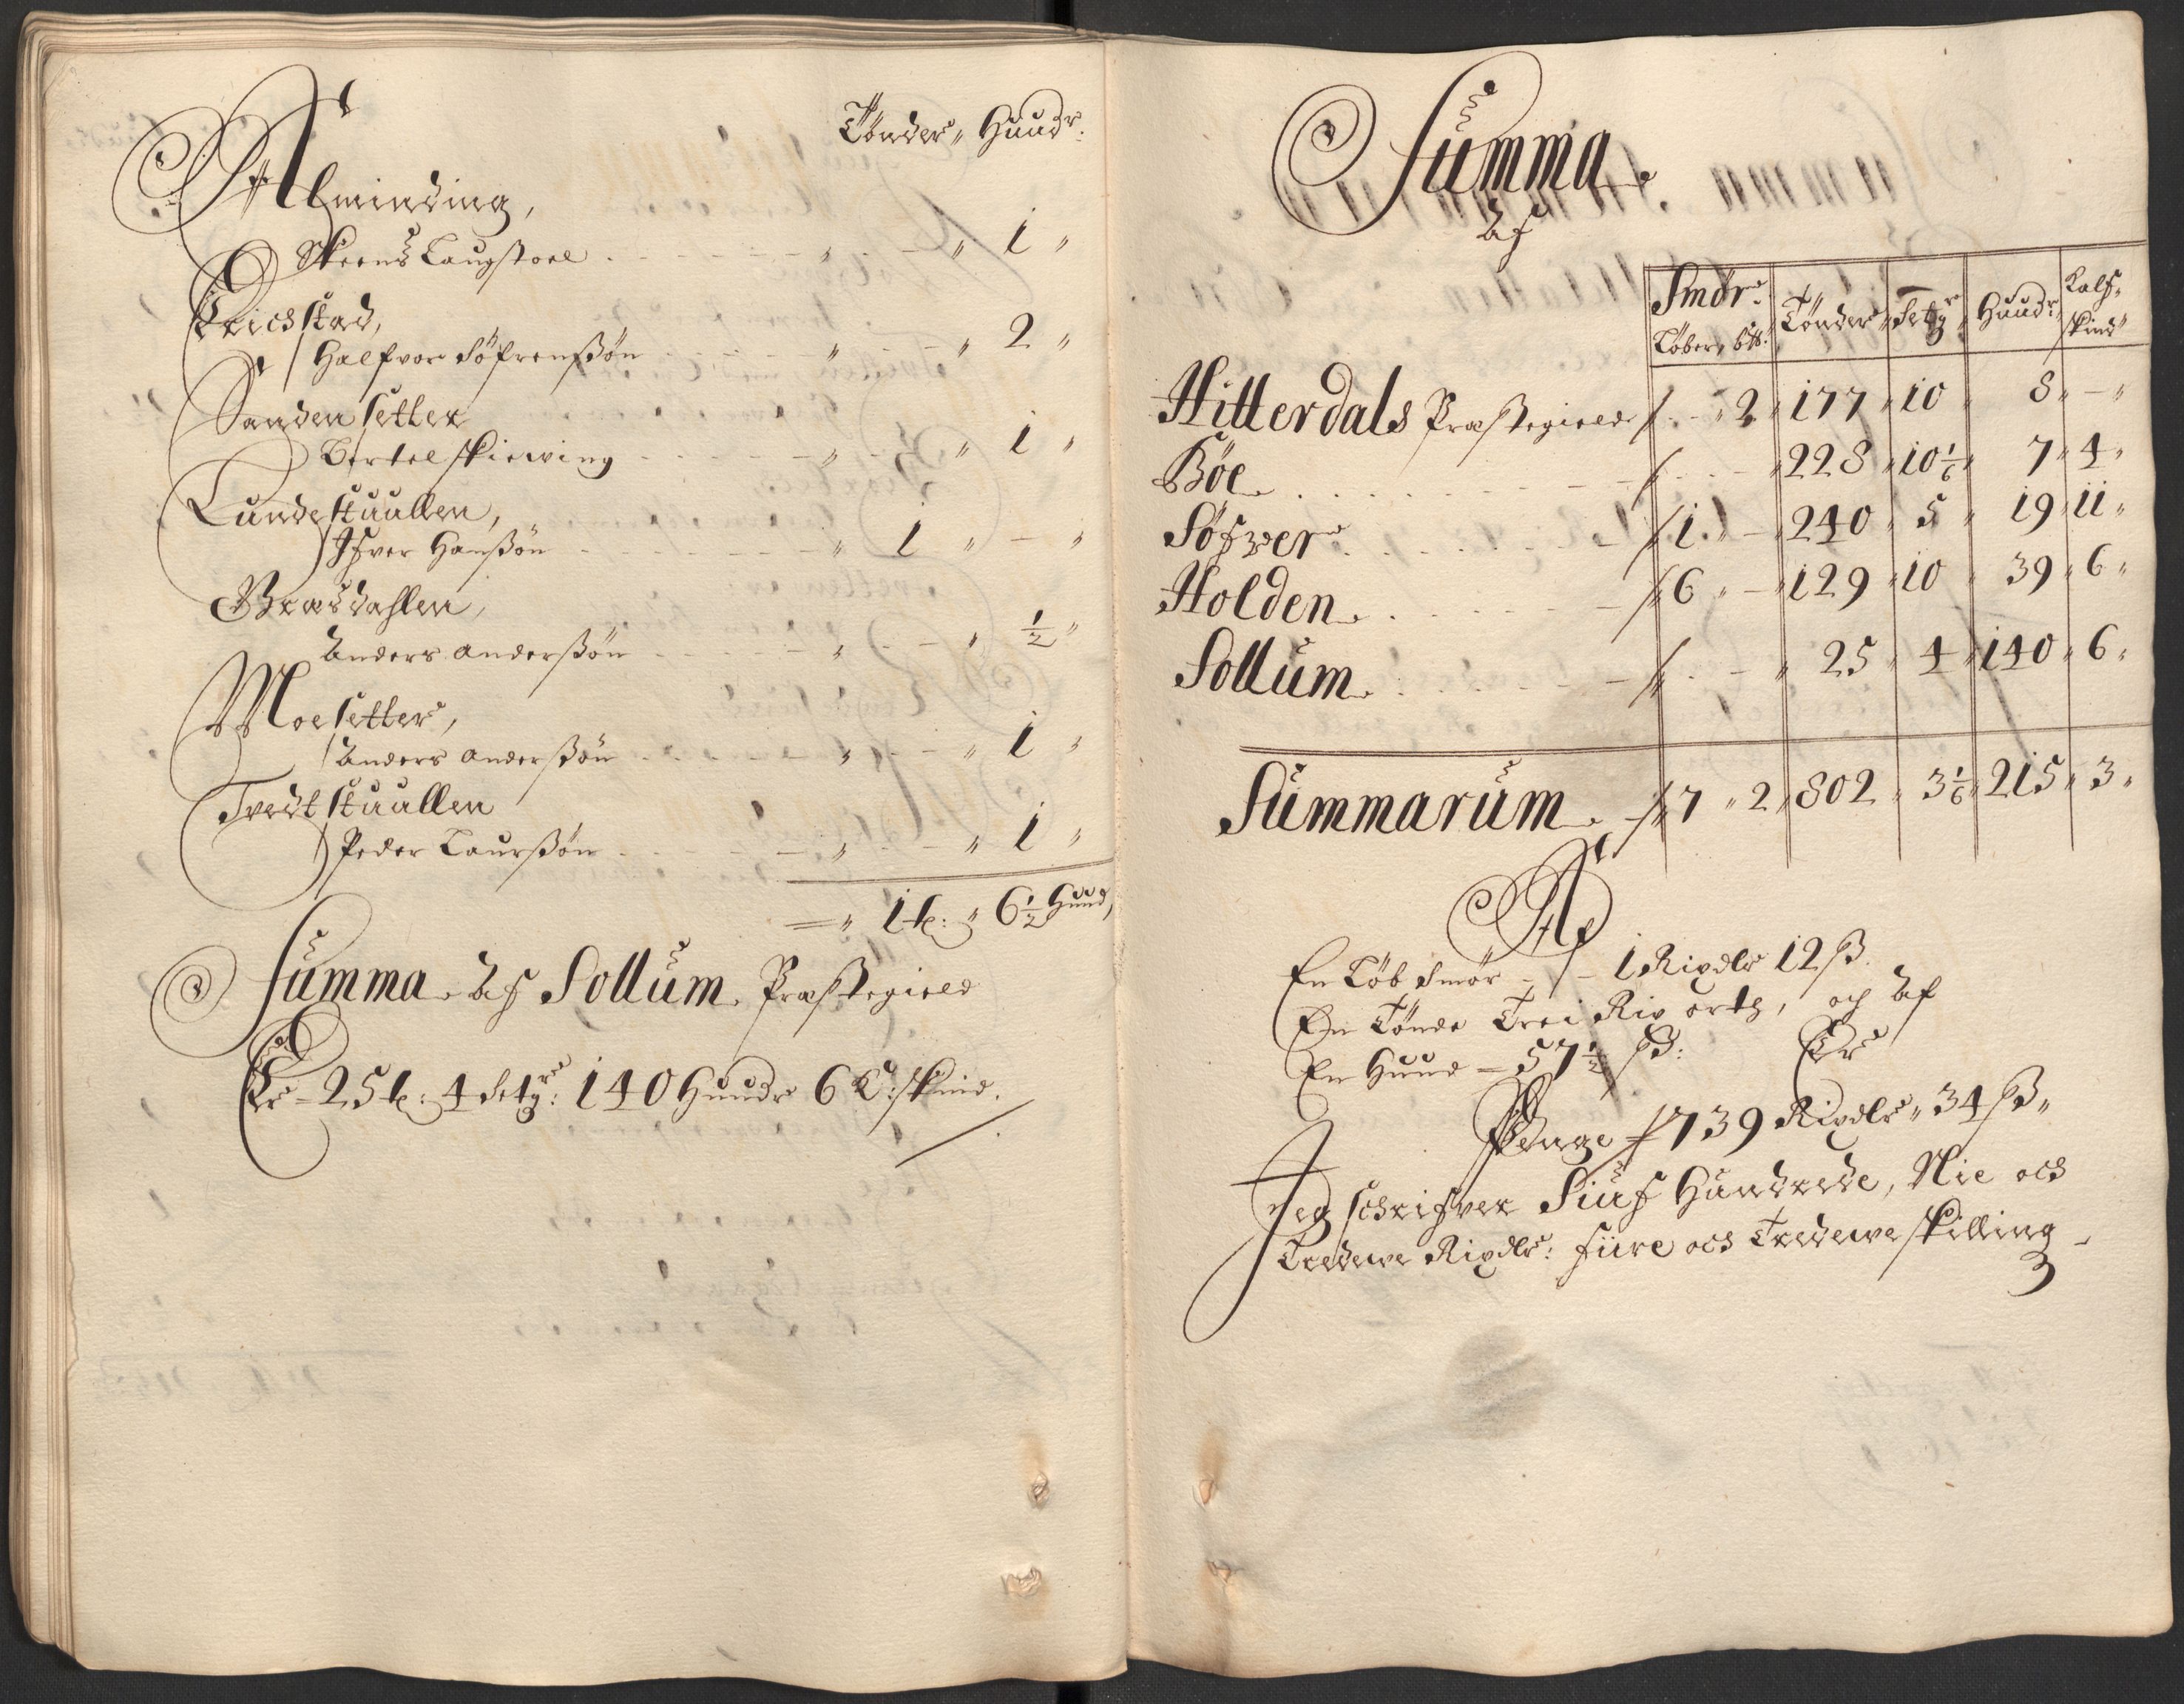 Tönder „ Huudr:
Alminding,
Skeens Laugstoel . - - - „ - „ 1 „
Erichstad,
Halfvor Söfrenßön - - - „ - „ 2 „
Sandensetter
Bertel Skiewing - - - „ - „ 1 „
Lundestuullen,
Ifver Hanßön - - - „ 1 „ - „
Grasdahlen,
Anders Anderßön - - - „ - „ ½ „
Moesetter,
Anders Anderßön - - - „ - „ 1 „
Tvedtstuullen
Peder Laurßön - - - „ - „ 1 „
= „ 1 t: „ 6½ Huud,
Summa Af Sollum Præstegield
Er - 25 t: 4 setgr: 140 Huudr 6 K:skind.
Summa
Af
Smör: Tönder Setgr Huudr: Kalf-
Löber, b℔: skind
Hitterdals Præstegield - „ 2 „ 177 „ 10 „ 8 „ - „
Böe - - „ 228 „ 10⅙ „ 7 „ 4 „
Söfver 1 „ - „ 240 „ 5 „ 19 „ 11 „
Holden 6 „ - „ 129 „ 10 „ 39 „ 6 „
Sollum - - „ 25 „ 4 „ 140 „ 6 „
Summarum 7 „ 2 „ 802 „ 3⅙ „ 215 „ 3 „
Af
En Löb Smör - - 1 Rixdlr 12 ß.
En Tönde Trei Rix ortg, och Af
En Huud - 57½ ß: Er
Penge 739 Rixdlr „ 34 ß „
Jeg schrifver Siuf Hundrede, Nie och
Tredewe Rixdlr: fiire och Tredewe skilling